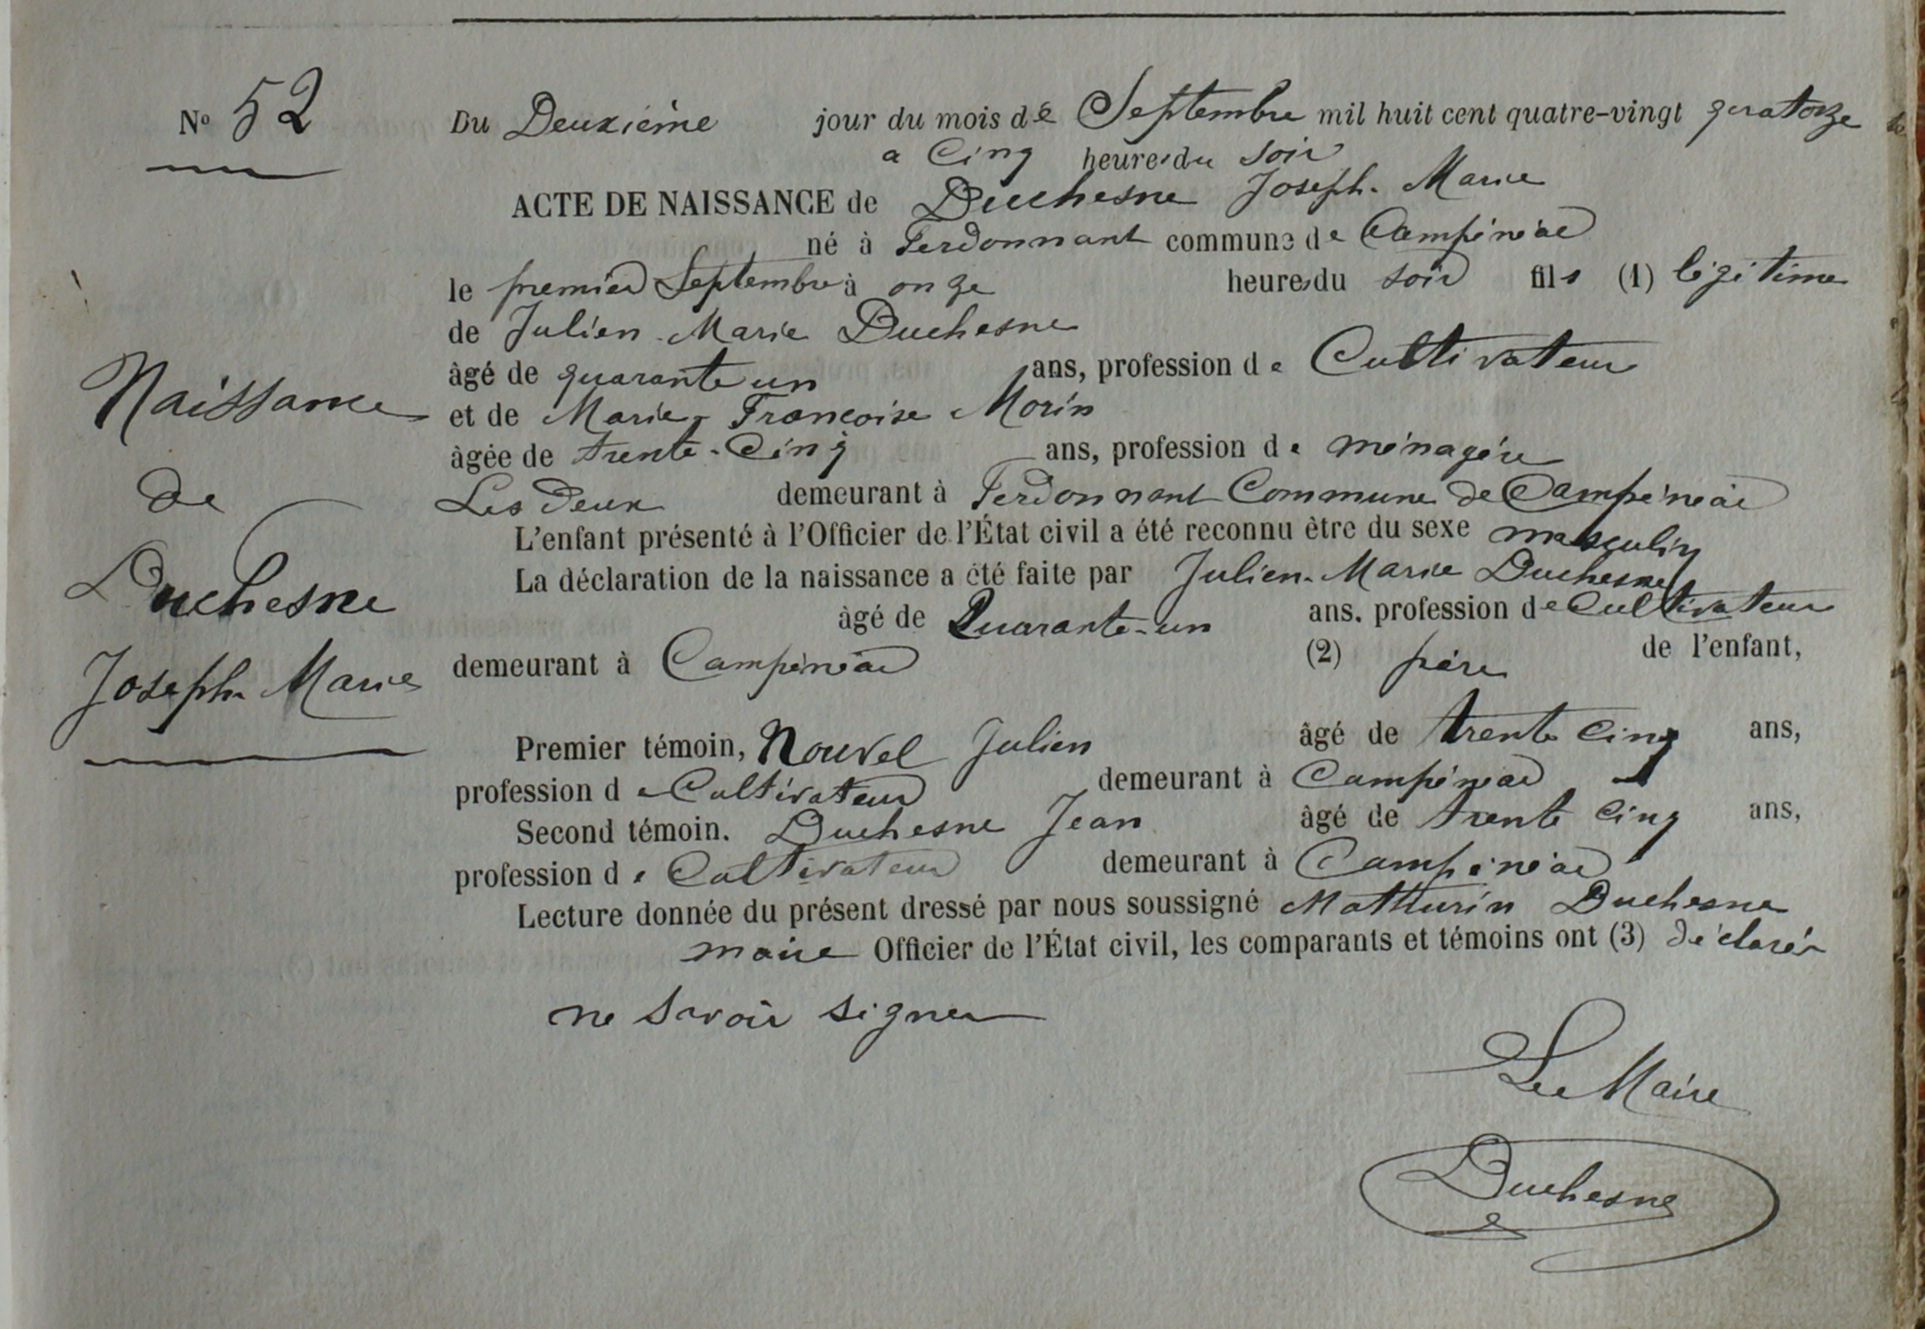 N° 52
Du Deuxième jour du mois de Septembre mil huit cent quatre-vingt quatorze
a Cinq heures du soir
ACTE DE NAISSANCE de Duchesne Joseph. Marie
né à Ferdonnant commune de Campénéac
le premier Septembre à onze heures du soir fils (1) légitime
de Julien Marie Duchesne
âgé de quarante un ans, profession de Cultivateur
et de Marie Françoise Morin
âgée de trente-Cinq ans, profession de ménagère
Les deux demeurant à Ferdonnant Commune de Campénéac
L'enfant présenté à l'Officier de l'État civil a été reconnu être du sexe masculin
La déclaration de la naissance a été faite par Julien-Marie Duchesne
âgé de Quarante-un ans. profession de Cultivateur
demeurant à Campénéac (2) père de l'enfant,
Premier témoin, Nouvel Julien âgé de trente Cinq ans,
profession de Cultivateur demeurant à Campénéac
Second témoin. Duchesne Jean âgé de trente Cinq ans,
profession de Cultivateur demeurant à Campénéac
Lecture donnée du présent dressé par nous soussigné Mathurin Duchesne
maire Officier de l'État civil, les comparants et témoins ont (3) déclarés
ne savoir signer
Le Maire
Duchesne
Naissance
de
Duchesne
Joseph Marie